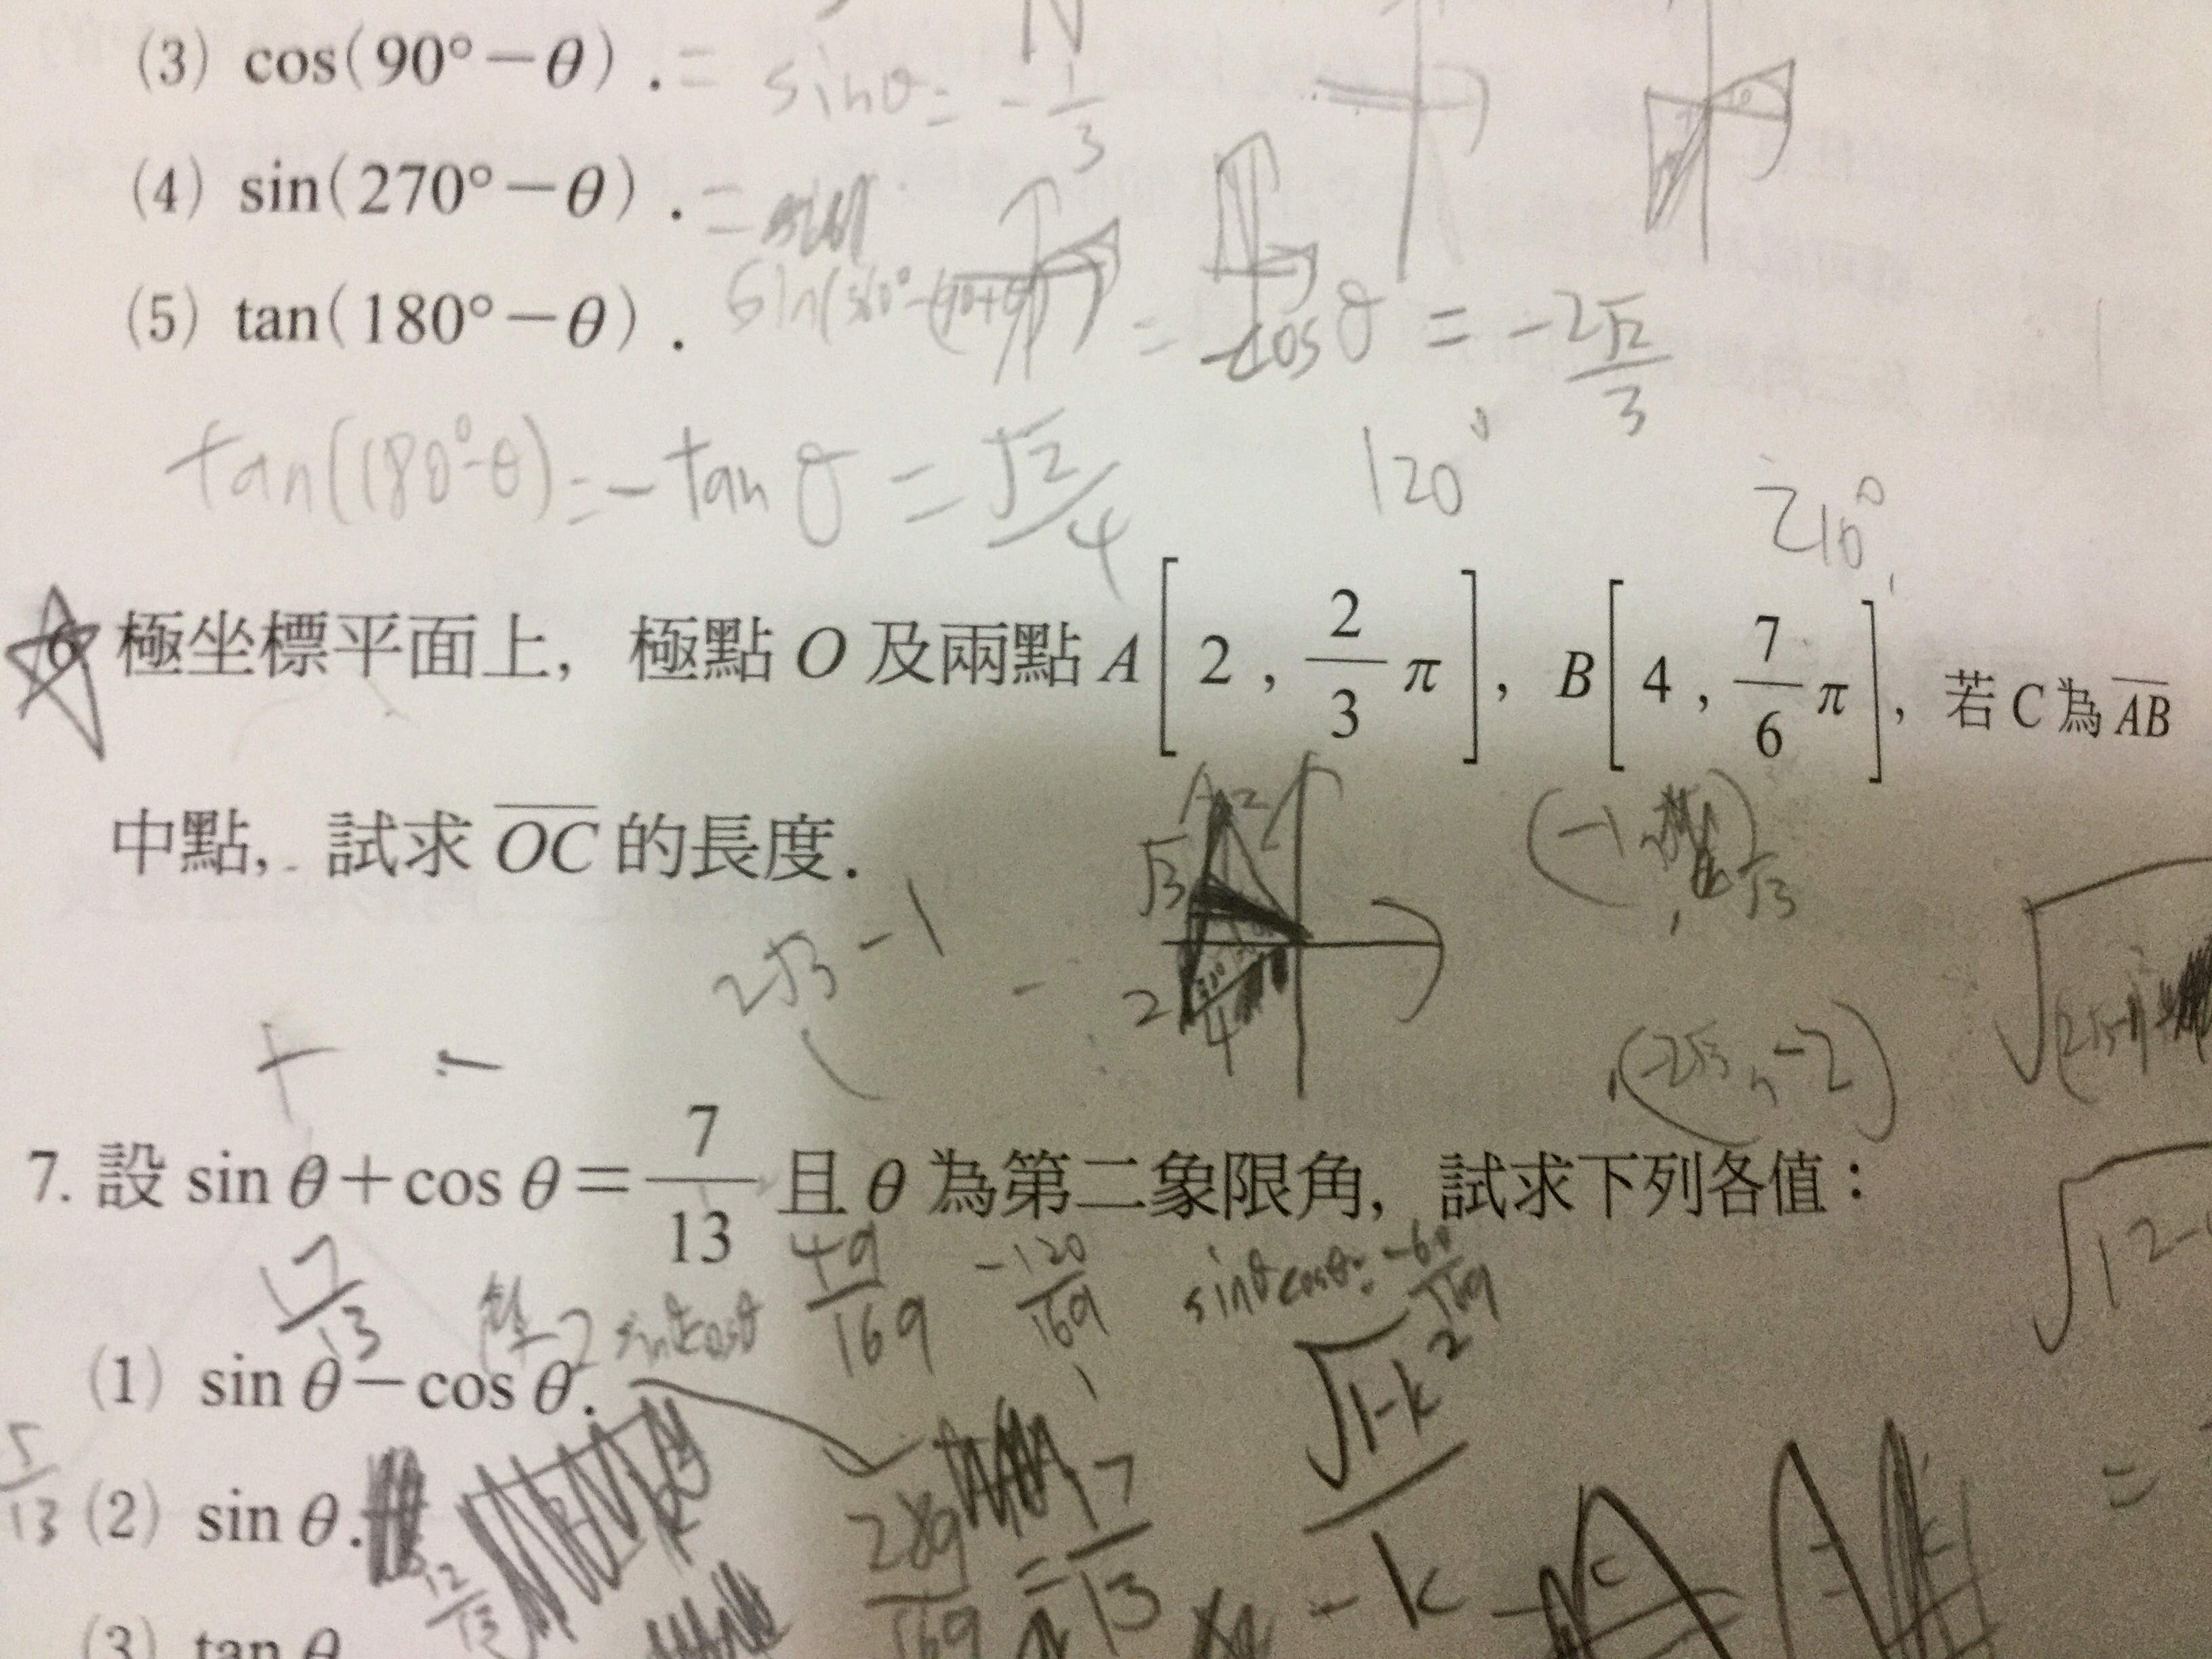 (3) cos(90°−θ). = sinθ = −1/3
(4) sin(270°−θ). =
(5) tan(180°−θ). = −cosθ = −2√2/3
tan(180°−θ) = −tanθ = √2/4
120° 210°
6. 極坐標平面上, 極點 O 及兩點 A[2, 2/3 π], B[4, 7/6 π], 若 C 為 AB
中點, 試求 OC 的長度.
A 2 √3 2 4
(−1, √3)
2√3 −1
(−2√3, −2)
+ −
7. 設 sin θ + cos θ = 7/13 且 θ 為第二象限角, 試求下列各值：
17/13 −2 sinθcosθ 49/169 −120/169 sinθcosθ = −60/169
(1) sin θ − cos θ.
√1−k² / −k
5/13 (2) sin θ.
12/13 289/169 = 17/13
(3) tan θ